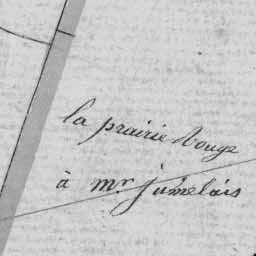 la prairie Rouge
à mr jumelais